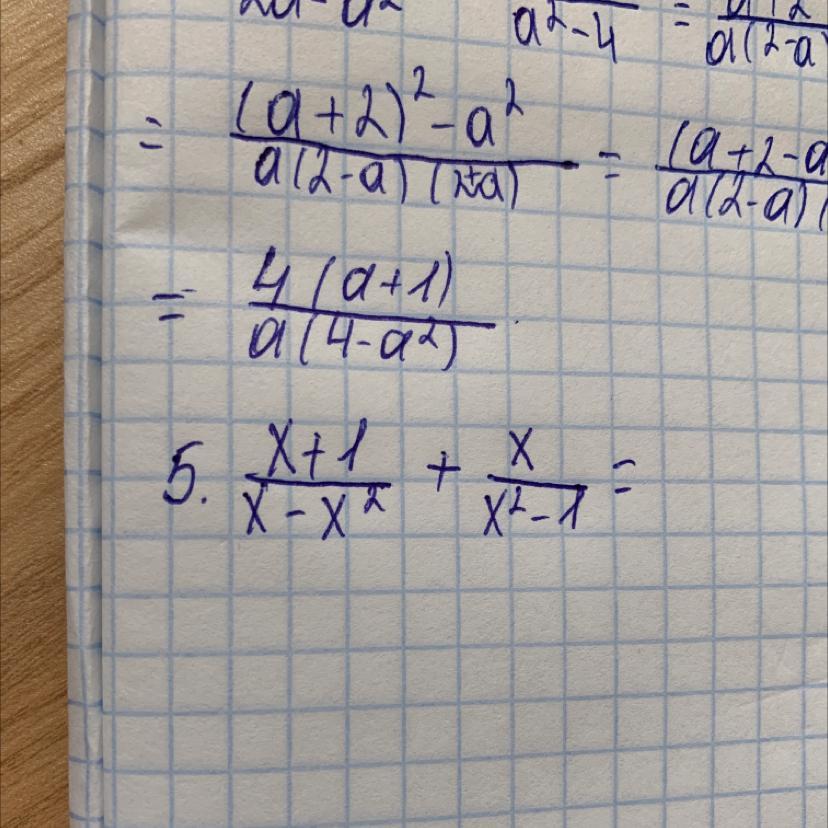 2a-a² a²-4 = a(2-a)
= (a+2)²-a² / a(2-a)(2+a) = (a+2-a / a(2-a)(
= 4(a+1) / a(4-a²)
5. x+1 / x-x² + x / x²-1 =